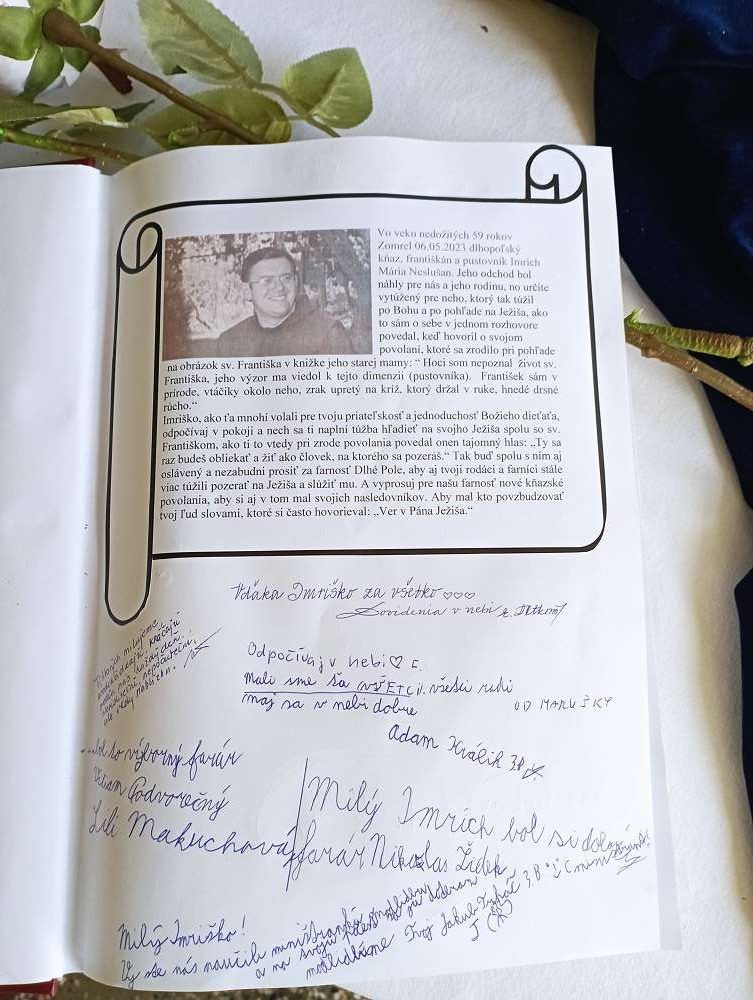 Vo veku nedožitých 59 rokov
Zomrel 06.05.2023 dlhopoľský
kňaz, františkán a pustovník Imrich
Mária Neslušan. Jeho odchod bol
náhly pre nás a jeho rodinu, no určite
vytúžený pre neho, ktorý tak túžil
po Bohu a po pohľade na Ježiša, ako
to sám o sebe v jednom rozhovore
povedal, keď hovoril o svojom
povolaní, ktoré sa zrodilo pri pohľade
na obrázok sv. Františka v knižke jeho starej mamy: “ Hoci som nepoznal život sv.
Františka, jeho výzor ma viedol k tejto dimenzii (pustovníka). František sám v
prírode, vtáčiky okolo neho, zrak upretý na kríž, ktorý držal v ruke, hnedé drsné
rúcho.“
Imriško, ako ťa mnohí volali pre tvoju priateľskosť a jednoduchosť Božieho dieťaťa,
odpočívaj v pokoji a nech sa ti naplní túžba hľadieť na svojho Ježiša spolu so sv.
Františkom, ako ti to vtedy pri zrode povolania povedal onen tajomný hlas: „Ty sa
raz budeš obliekať a žiť ako človek, na ktorého sa pozeráš.“ Tak buď spolu s ním aj
oslávený a nezabudni prosiť za farnosť Dlhé Pole, aby aj tvoji rodáci a farníci stále
viac túžili pozerať na Ježiša a slúžiť mu. A vyprosuj pre našu farnosť nové kňazské
povolania, aby si aj v tom mal svojich nasledovníkov. Aby mal kto povzbudzovať
tvoj ľud slovami, ktoré si často hovorieval: „Ver v Pána Ježiša.“
Vďaka Imriško za všetko ♡♡♡
Dovidenia v nebi
Tí ktorých milujeme
neodchádzajú, kráčajú
každý deň.
Odpočívaj v nebi♡ E.
Mali sme ťa všetci radi
maj sa v nebi dobre
OD MARUŠKY
Adam Králik 3.B
...bol to výborný farár
Podvorečný
Lili Makuchová
Milý Imrich bol si dobrý
farár Nikolas Židek
Milý Imriško!
Vy ste nás naučili
a na svoju
modlidbáme Tvoj Jakub 3.B